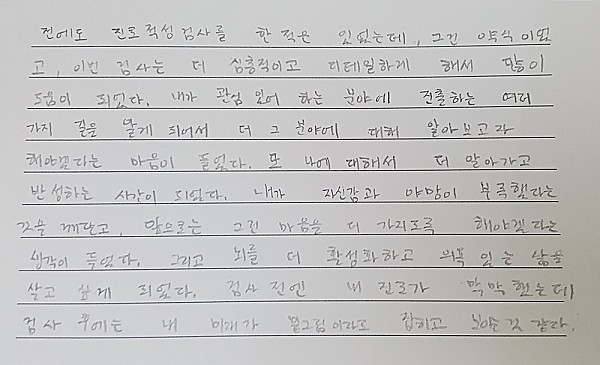 전에도 진로적성검사를 한 적은 있었는데, 그건 약식이었
고, 이번 검사는 더 심층적이고 디테일하게 해서 많이
도움이 되었다. 내가 관심 있어 하는 분야에 진출하는 여러
가지 길을 알게 되어서 더 그 분야에 대해 알아보고자
해야겠다는 마음이 들었다. 또 나에 대해서 더 알아가고
반성하는 시간이 되었다. 내가 자신감과 야망이 부족했다는
것을 깨닫고, 앞으로는 그런 마음을 더 가지도록 해야겠다는
생각이 들었다. 그리고 뇌를 더 활성화하고 의욕 있는 삶을
살고 싶게 되었다. 검사 전엔 내 진로가 막막했는데
검사 후에는 내 미래가 밑그림이라도 잡히고 같다.